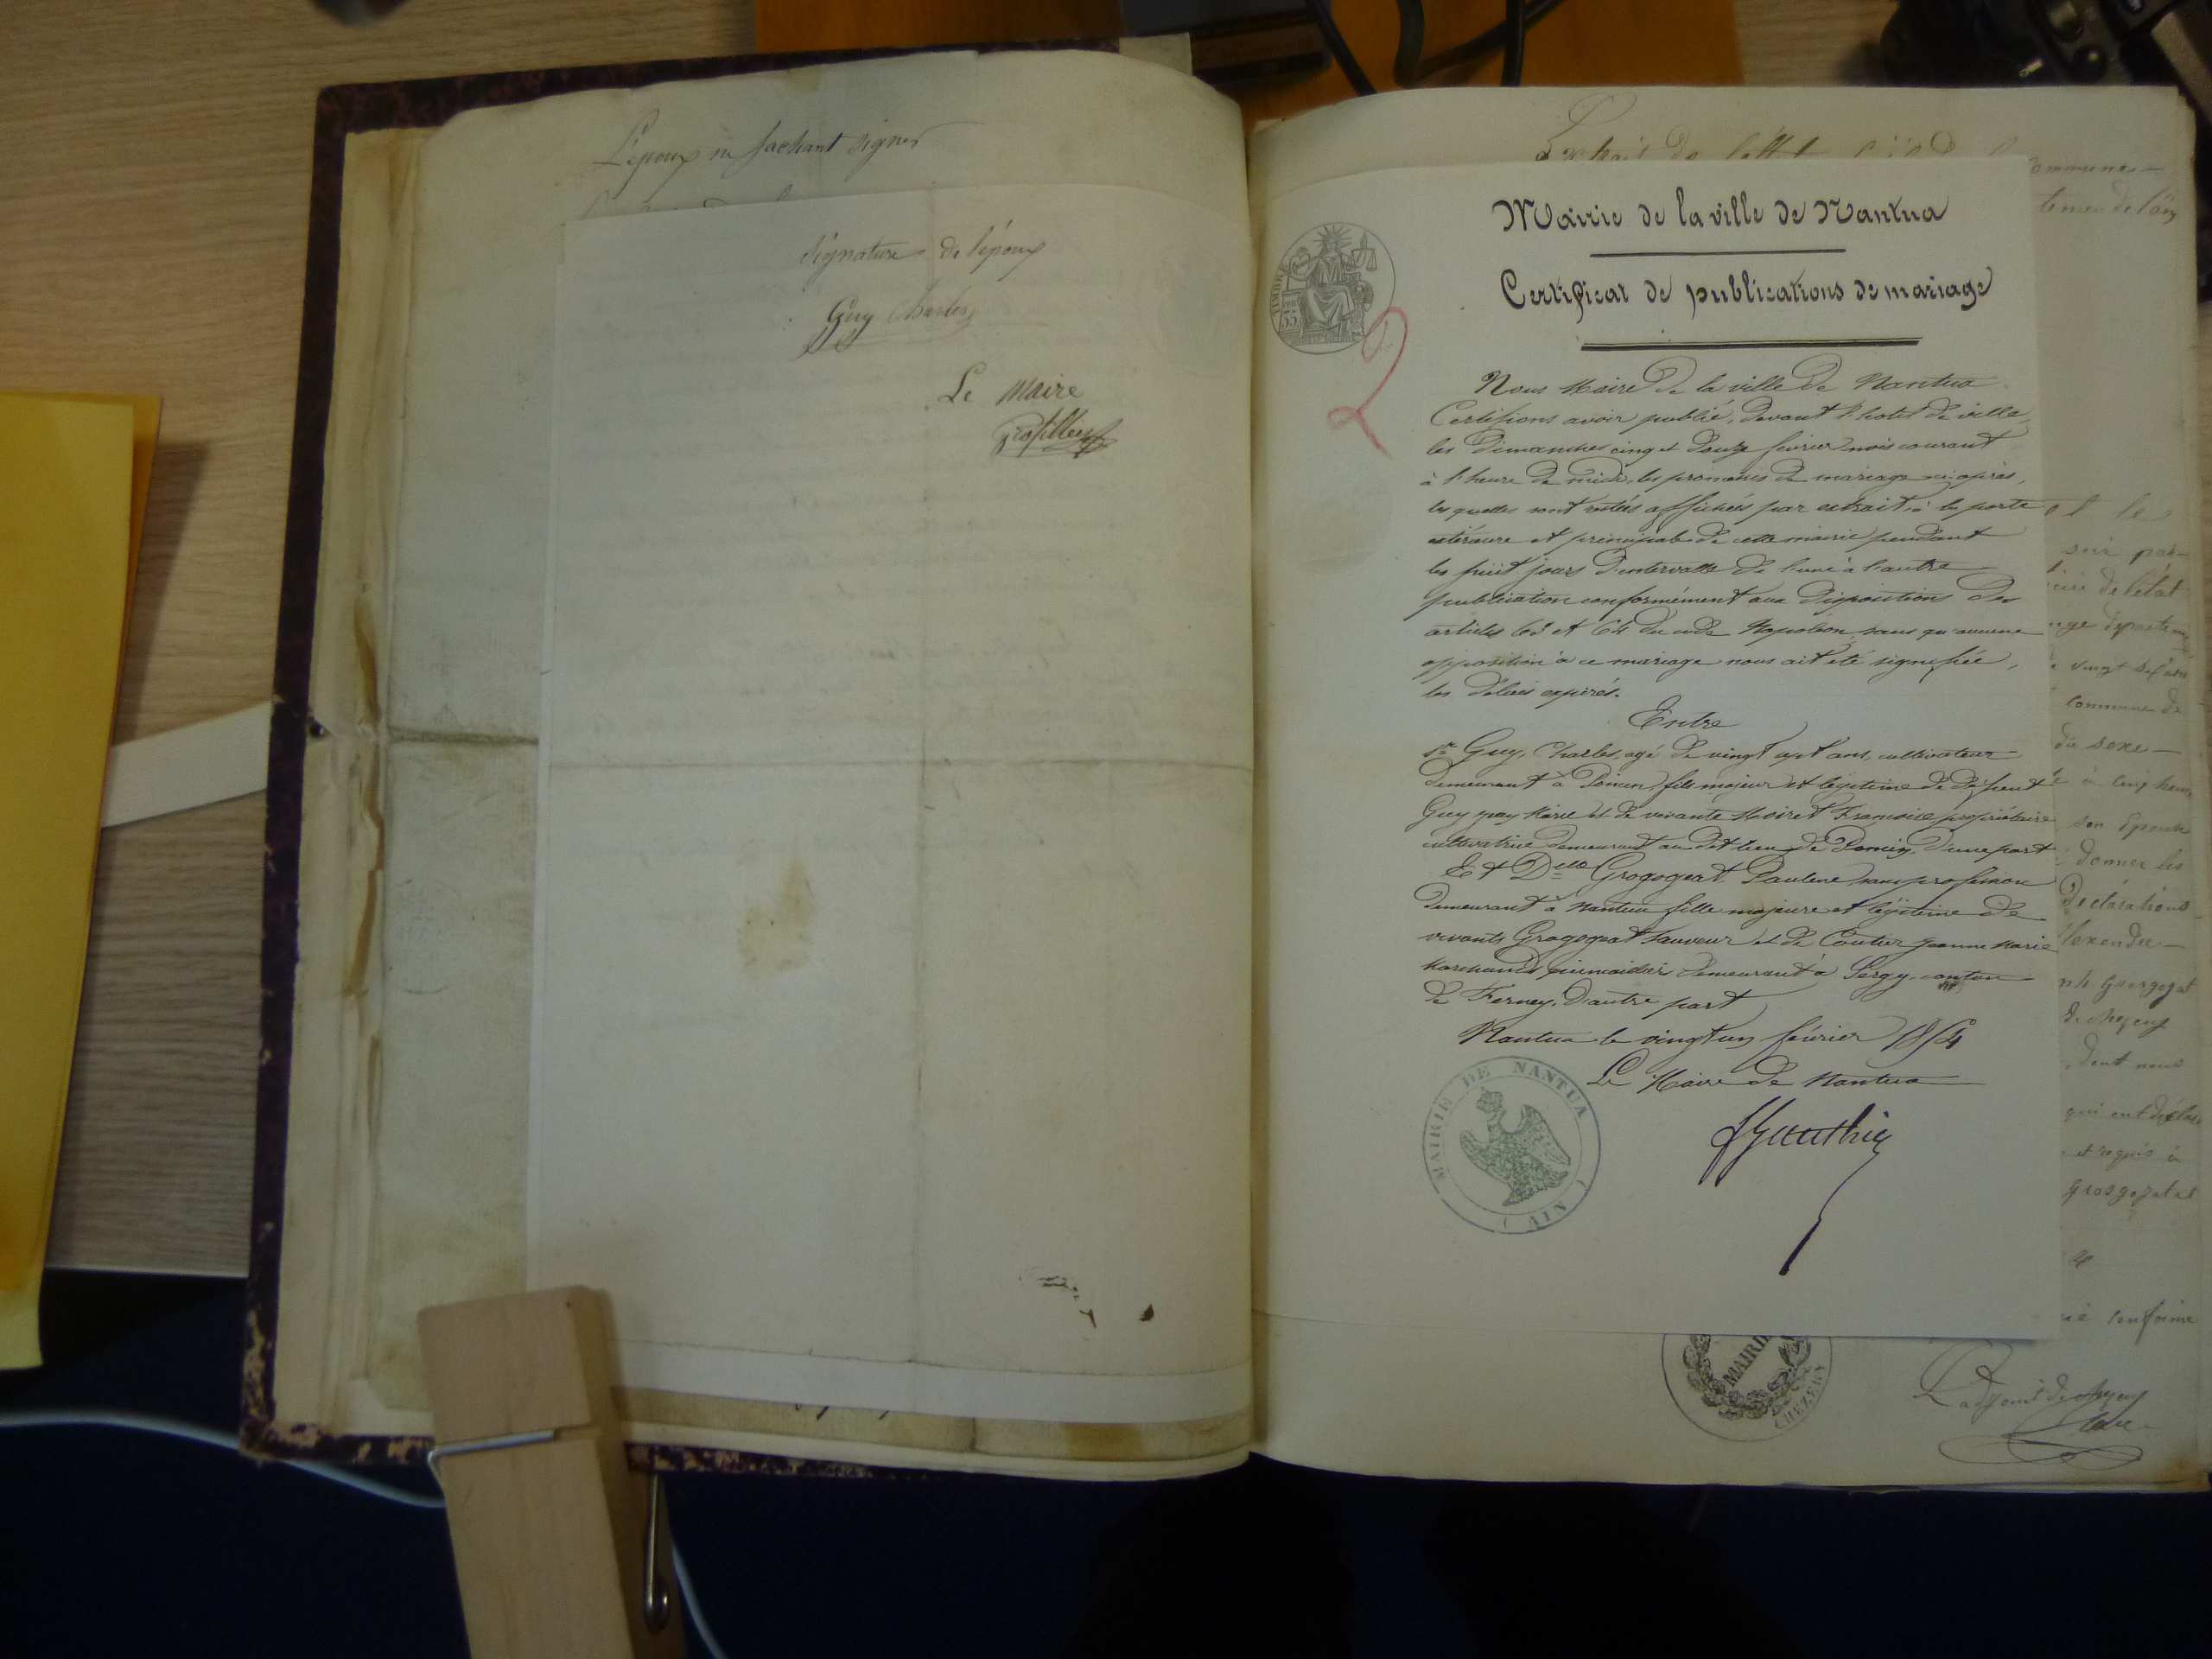 L'époux ne sachant signer
Signature de l'époux
Guy Charles
Le Maire
Grosfilley
Extrait de
communes
Mairie de la ville de Nantua
Certificat de publications de mariage
TIMBRE
Nous Maire de la ville de Nantua
Certifions avoir publié, devant l'hotel de ville,
les Dimanches cinq et douze février mois courant
à l'heure de midi, les promesses de mariage ci-après,
lesquelles sont restées affichées par extrait à la porte
extérieure et principale de cette mairie pendant
les huit jours d'intervalle de l'une à l'autre
publication conformément aux dispositions des
articles 63 et 64 du code Napoléon, sans qu'aucune
opposition à ce mariage nous ait été signifiée,
les délais expirés.
Entre
Sr Guy, Charles, agé de vingt sept ans, cultivateur
demeurant à fils majeur et légitime de défunt
Guy Marie et de vivante Moiret Françoise propriétaire
cultivatrice demeurant au dit lieu de d'une part
Et Delle Grogogeat Pauline, sans profession
demeurant à Nantua fille majeure et légitime de
vivants Grogogeat Sauveur et de Coutier Jeanne Marie
marchands demeurant à Sergy canton
de Ferney, d'autre part
Nantua le vingt un février 1854
Le Maire de Nantua
MAIRIE DE NANTUA
(AIN)
et le
soir par
de l'état
vingt
commune de
du sexe
à cinq heures
son épouse
donner les
Déclarations
Grosgogeat
dont nous
qui ont déclaré
et requis à
conforme
MAIRIE
CHEZERY
L'adjoint de